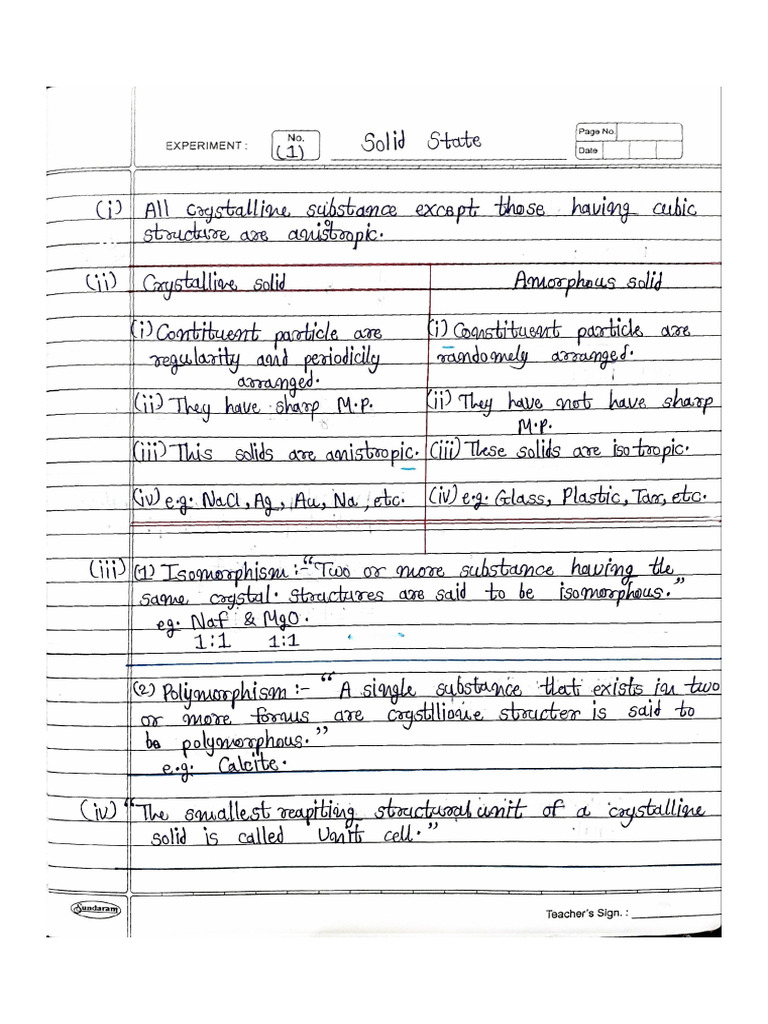 EXPERIMENT : No. (1) Solid State Page No.
Date
(i) All crystalline substance except those having cubic
structure are anistropic.
(ii) Crystalline solid
(i) Contituent particle are
regularity and periodicily
arranged.
(ii) They have sharp M.P.
(iii) This solids are anistropic.
(iv) e.g: NaCl, Ag, Au, Na, etc.
Amorphous solid
(i) Constituent particle are
randomely arranged.
(ii) They have not have sharp
M.P.
(iii) These solids are isotropic.
(iv) e.g: Glass, Plastic, Tar, etc.
(iii) (1) Isomorphism :- "Two or more substance having the
same crystal. structures are said to be isomorphous."
eg: NaF & MgO.
1:1 1:1
(2) Polymorphism :- "A single substance that exists in two
or more forms are crystllione structer is said to
be polymorphous."
e.g: Calcite.
(iv) "The smallest reapiting structural unit of a crystalline
solid is called Unit cell."
Sundaram
Teacher's Sign. :